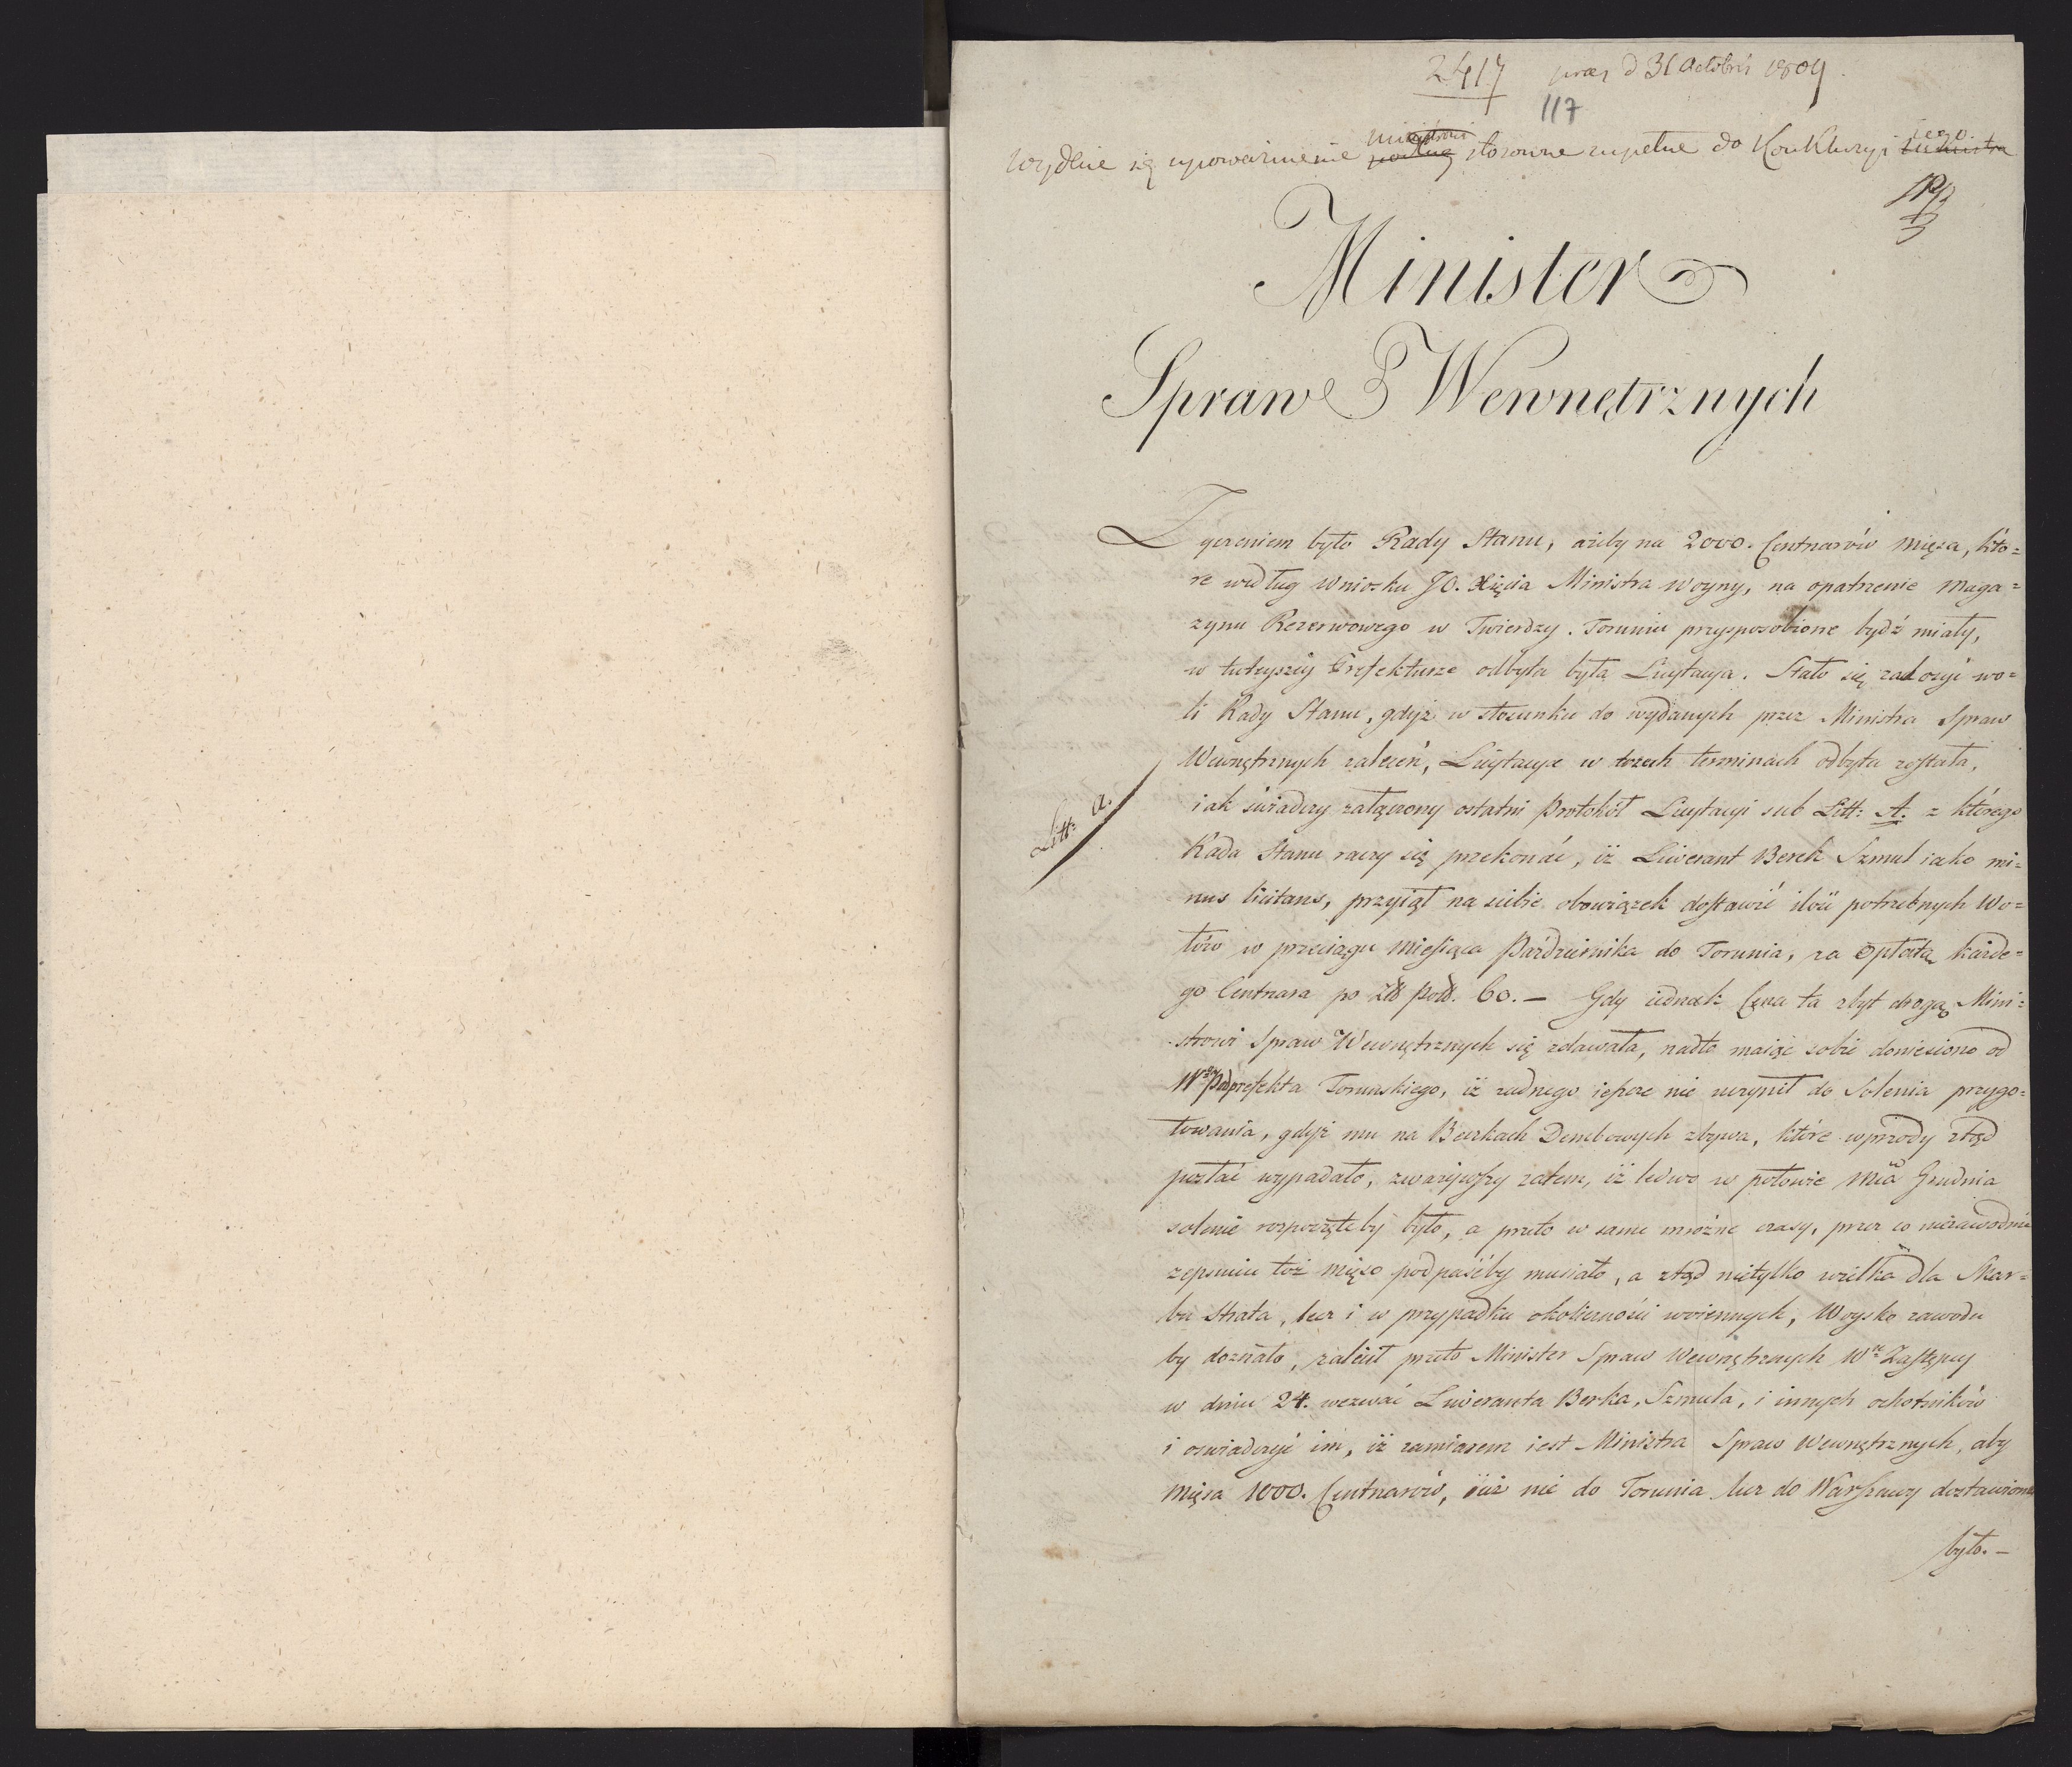 2417 præs d 31 Octobris 1809.
117
Ministrowi tego
Wydać się upoważnienie podług stosowne zupełne do Konkluzyi Ministra
Minister
Spraw Wewnętrznych
Życzeniem było Rady Stanu, ażeby na 2000. Centnarów mięsa, kto=
re według wniosku JO. Xięcia Ministra Woyny, na opatrzenie Maga=
zynu Rezerwowego w Twierdzy. Toruniu przysposobione bydź miały,
w tuteyszéy Prefekturze odbyta była Licytacya. Stało się zadosyć wo=
li Rady Stanu, gdyż w stosunku do wydanych przez Ministra Spraw
Wewnętrznych zaleceń, Licytacya w trzech terminach odbyta została,
Litt: a.
iak świadczy załączony ostatni Protokół Licytacyi sub Litt: A. z którego
Rada Stanu raczy się przekonać, iż Liwerant Berek Szmul iako mi=
nus licitans, przyiął na siebie obowiązek dostawić ilość potrzebnych Wo=
łów w przeciągu Miesiąca Października do Torunia, za opłatą każde=
go Centnara po Zł Pol. 60. — Gdy iednak Cena ta zbyt drogą Mini=
strowi Spraw Wewnętrznych się zdawała, nadto maiąc sobie doniesiono od
Wgo Podprefekta Toruńskiego, iż żadnego ieszcze nie uczynił do Solenia przygo=
towania, gdyż mu na Beczkach Dembowych zbywa, które wprzódy ztąd
posłać wypadało, zważywszy zatem, iż ledwo w połowie Mca Grudnia
solenie rozpoczęteby było, a przeto w same mroźne czasy, przez co niezawodnie
zepsuciu toż mięso podpaśćby musiało, a ztąd nietylko wielka dla Skar=
bu Strata, lecz i w przypadku okoliczności woiennych, Woysko zawodu
by doznało, zalecił przeto Minister Spraw Wewnętrznych Wu Zastępcy
w dniu 24. wezwać Liweranta Berka, Szmula, i innych ochotników
i oswiadczyć im, iż zamiarem iest Ministra Spraw Wewnętrznych, aby
Mięsa 1000. Centnarów, iuż nie do Torunia lecz do Warszawy dostawione
było. —